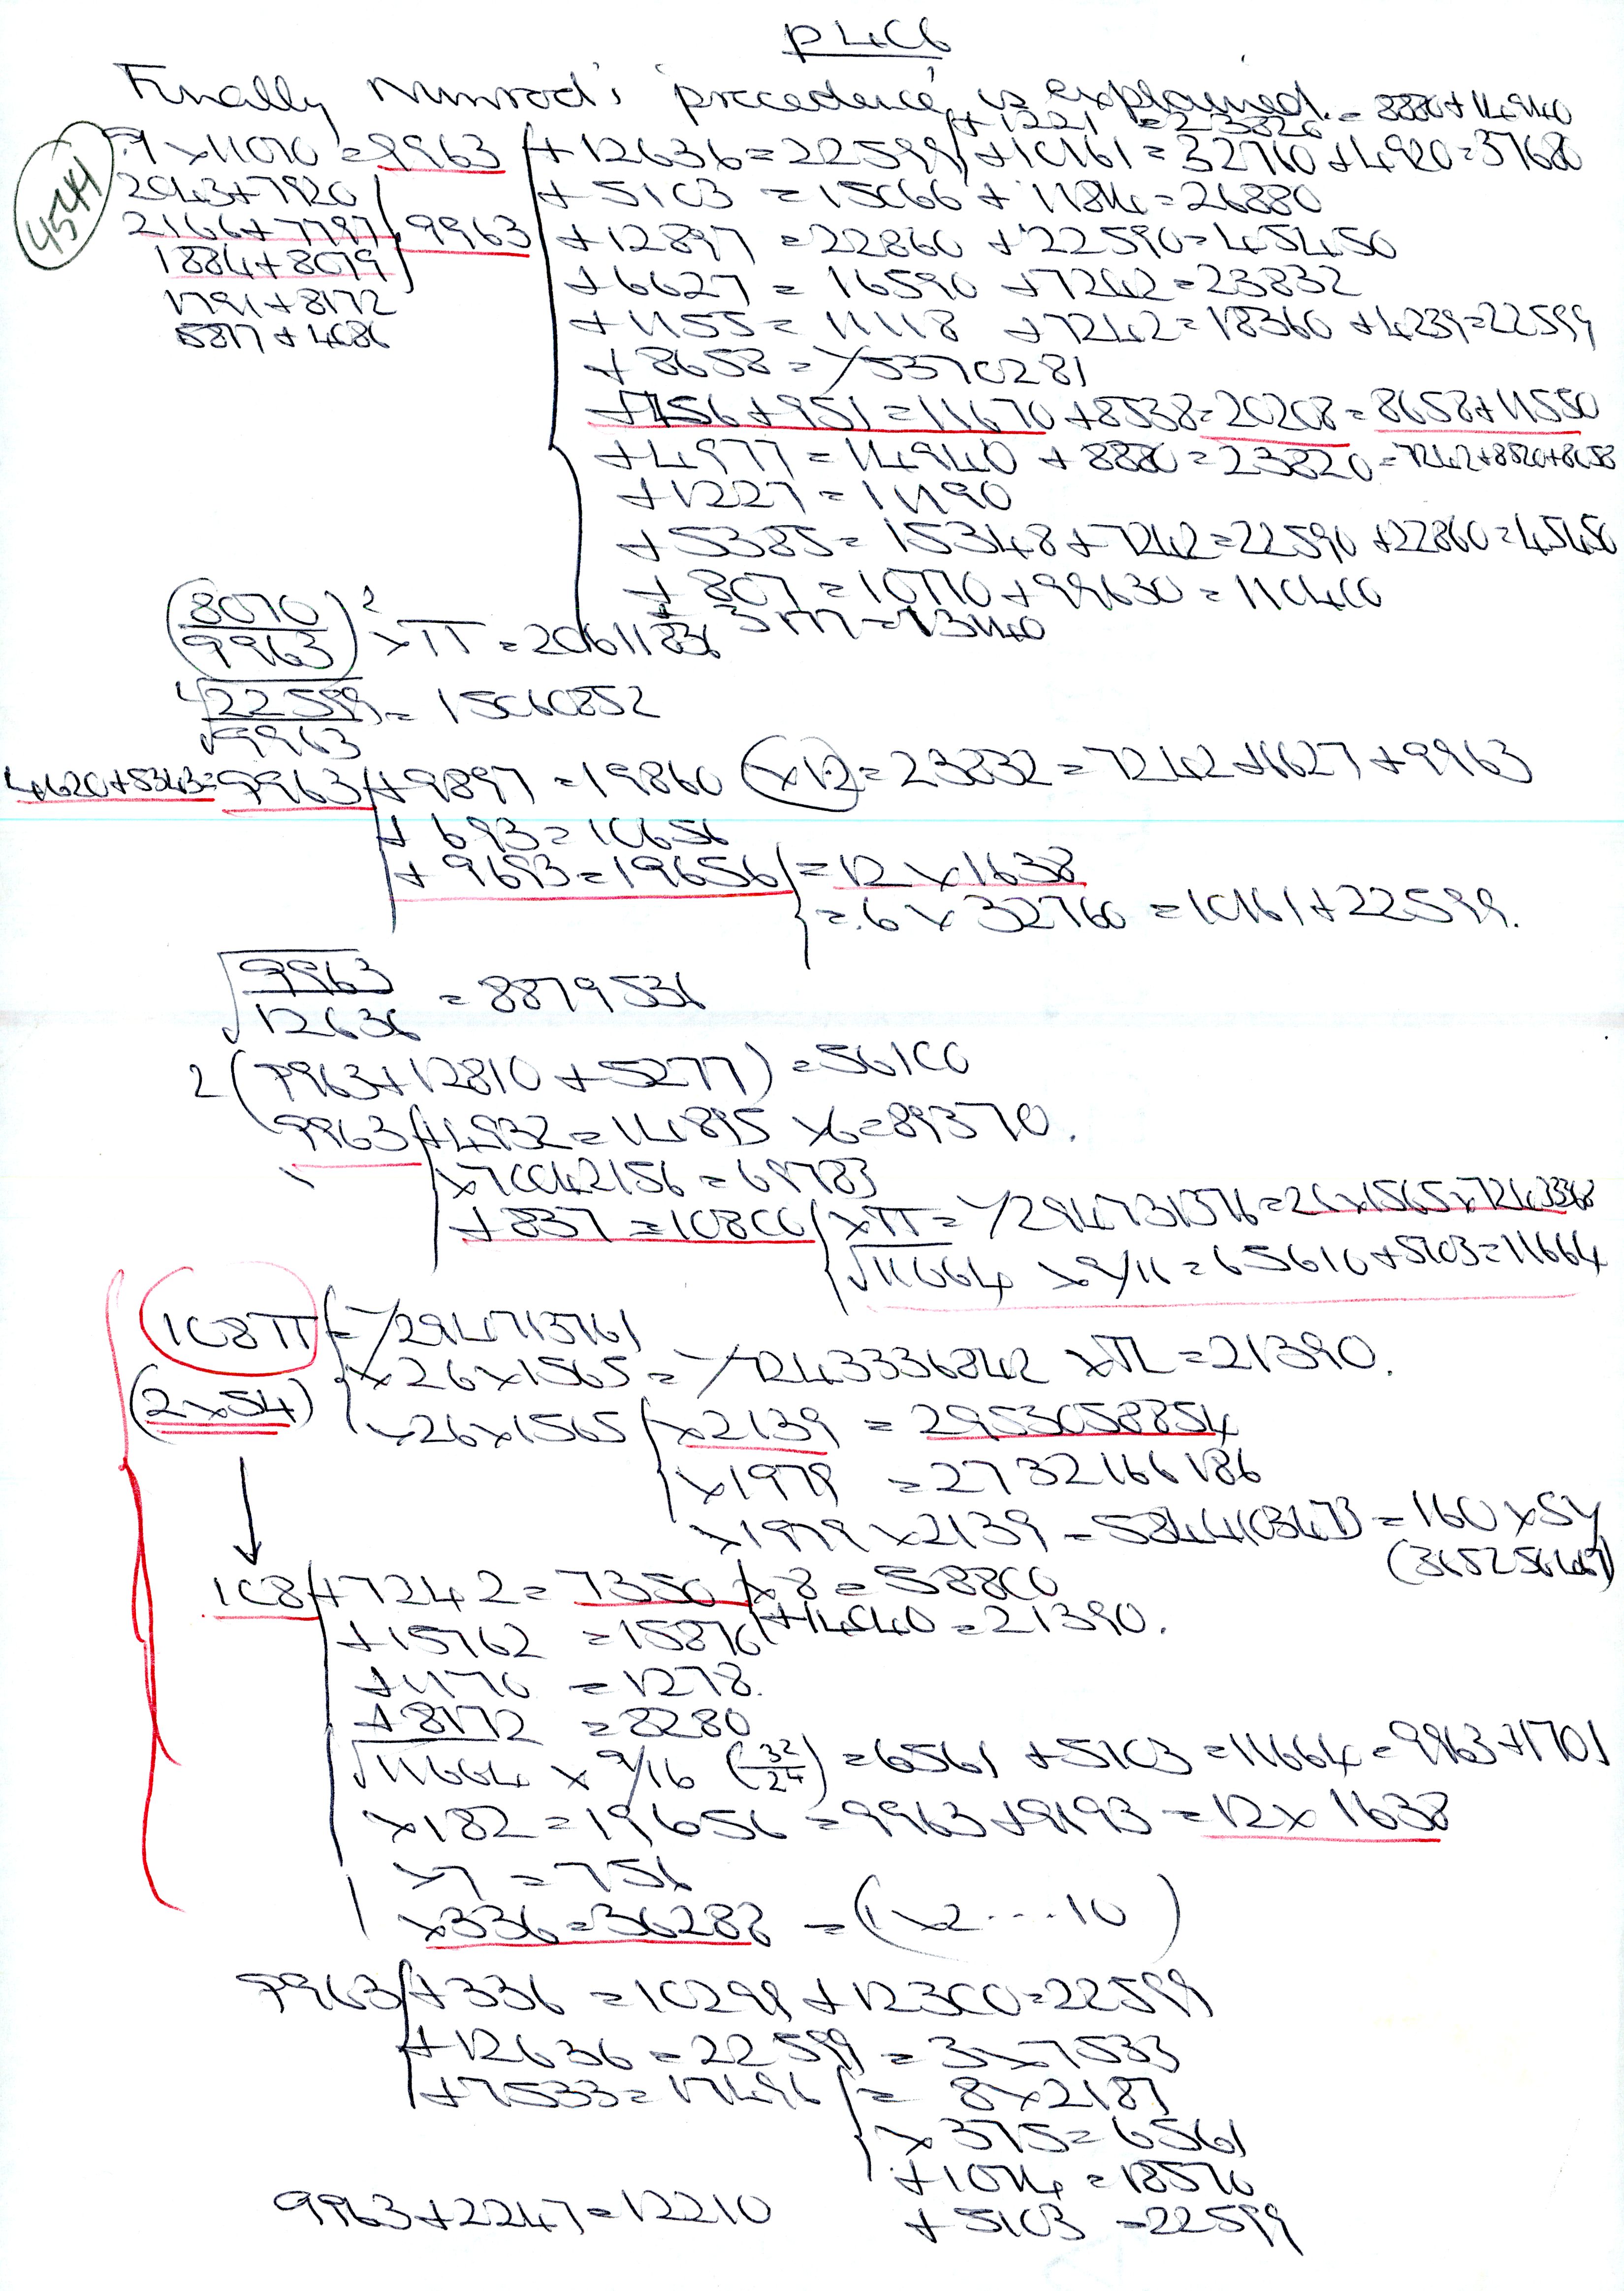 P4C6
Finally Nimrod's 'precedence' is explained.
+ 1221 = 23820 = 8880 + 14940
4544
.9 x 11070 = 9963 + 12636 = 22599 + 10161 = 32760 + 4920 = 37680
2043 + 7920 + 5103 = 15066 + 11814 = 26880
2166 + 7797 9963 + 12897 = 22860 + 22590 = 45450
1884 + 8079 + 6627 = 16590 + 7242 = 23832
1791 + 8172 + 1155 = 11118 + 7242 = 18360 + 4239 = 22599
5877 + 4086 + 8658 = 1/5370281
+ 756 + 951 = 11670 + 8538 = 20208 = 8658 + 11550
+ 4977 = 14940 + 8880 = 23820 = 7242 + 8820 + 8658
+ 1227 = 11190
+ 5385 = 15348 + 7242 = 22590 + 22860 = 45450
+ 807 = 10770 + 99630 = 110400
+ 3177 = 13140
(8070/9963)² x π = 20611836
√22599/√9963 = 15060852
4620 + 5343 = 9963 + 9897 = 19860 x 12 = 23832 = 7242 + 6627 + 9963
+ 693 = 10656
+ 9693 = 19656 = 12 x 1638
= .6 x 32760 = 10161 + 22599.
√9963/12636 = 8879536
2(9963 + 12810 + 5277) = 56100
9963 + 4932 = 14895 x 6 = 89370.
x 70042156 = 69783
+ 837 = 10800 x π = 1/294731376 = 26 x 1565 x 72433368
√11664 x 9/16 = 65610 + 5103 = 11664
108π = 1/2947313761
(2 x 54) x 26 x 1565 = 1/7243336842 x π = 21390.
x 26 x 1565 x 2139 = 2953058854
x 1979 = 2732166186
x 1979 x 2139 = 5844103473 = 160 x SY
(365256467)
108 + 7242 = 7350 x 8 = 58800
+ 14040 = 21390.
+ 15762 = 15870
+ 1170 = 1278.
+ 8172 = 8280
√11664 x 9/16 (32/24) = 6561 + 5103 = 11664 = 9963 + 1701
x 182 = 19656 = 9963 + 9693 = 12 x 1638
x 7 = 756
x 336 = 36288 = (1 x 2 ... 10)
9963 + 336 = 10299 + 12300 = 22599
+ 12636 = 22599 = 3 x 7533
+ 7533 = 17496 = 8 x 2187
x 375 = 6561
+ 1074 = 18570
+ 5103 = 22599
9963 + 2247 = 12210